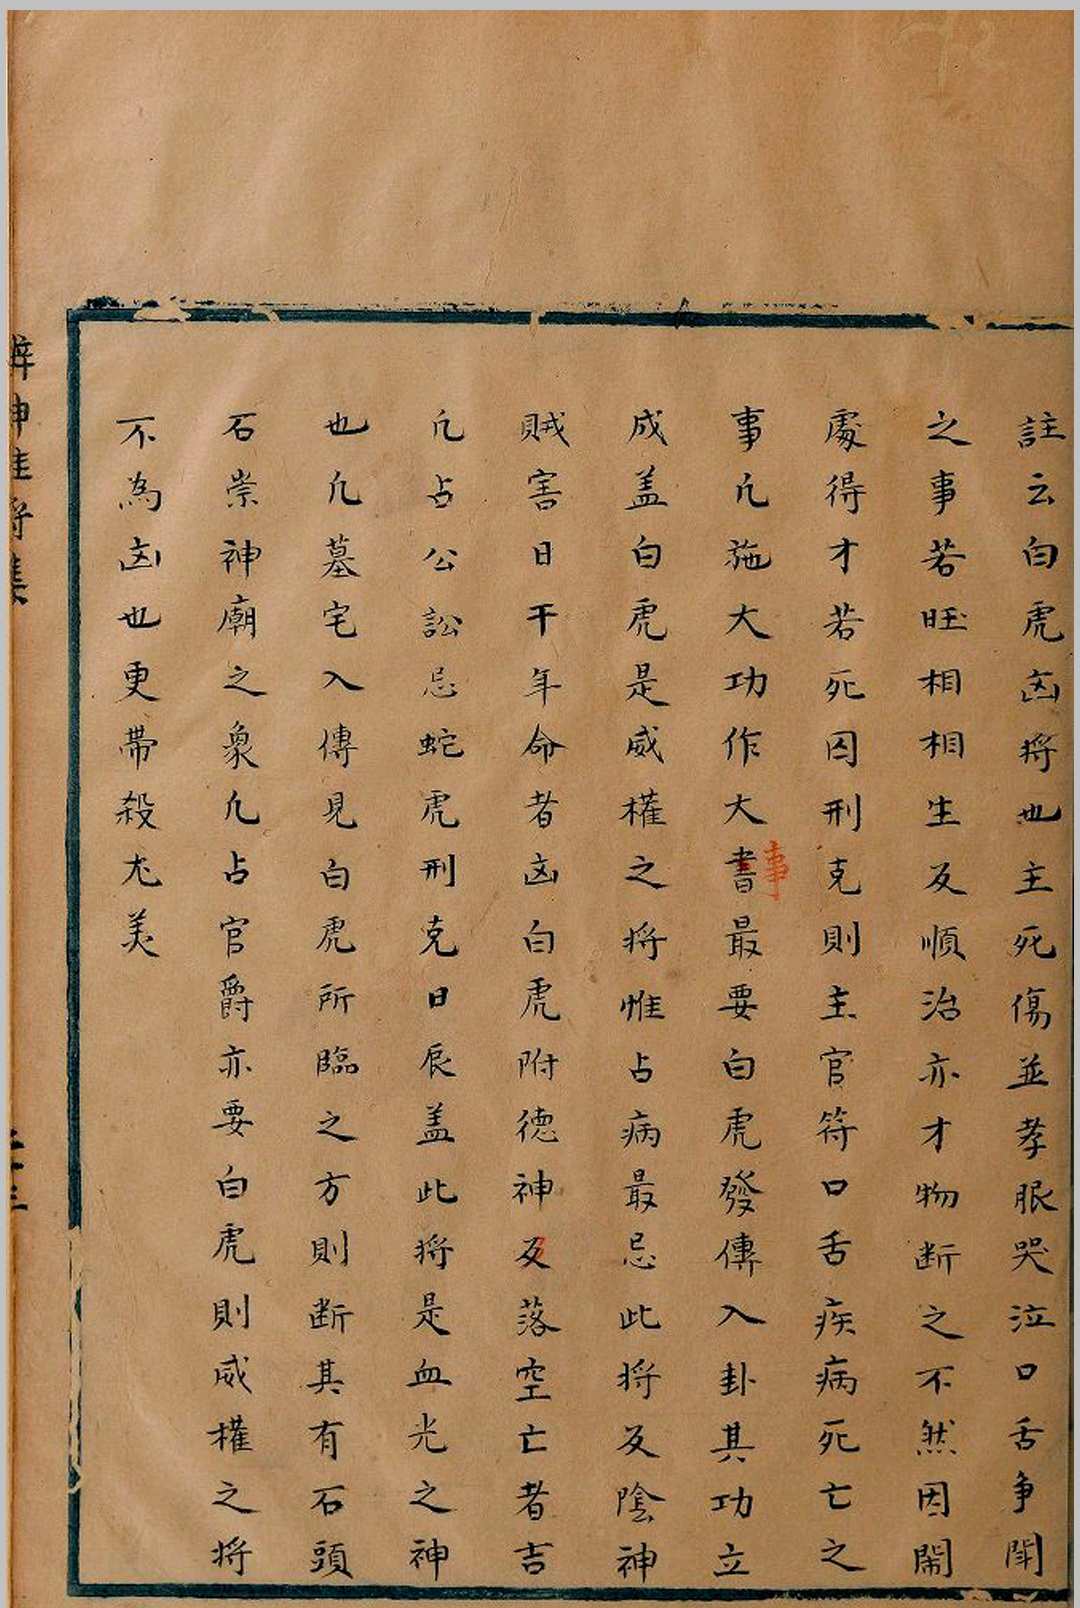 註云白虎凶将也主死傷並孝服哭泣口舌争鬪
之事若旺相相生反順治亦才物断之不然因閙
處得才若死囚刑克則主官符口舌疾病死亡之
事凢施大功作大書最要白虎發傳入卦其功立
事
成盖白虎是威權之将惟占病最忌此将及陰神
賊害日干年命者凶白虎附德神及落空亡者吉
凢占公訟忌蛇虎刑克日辰盖此将是血光之神
也凢墓宅入傳見白虎所臨之方則断其有石頭
石崇神廟之象凢占官爵亦要白虎則威權之将
不為凶也更帶殺尤美
神
将集